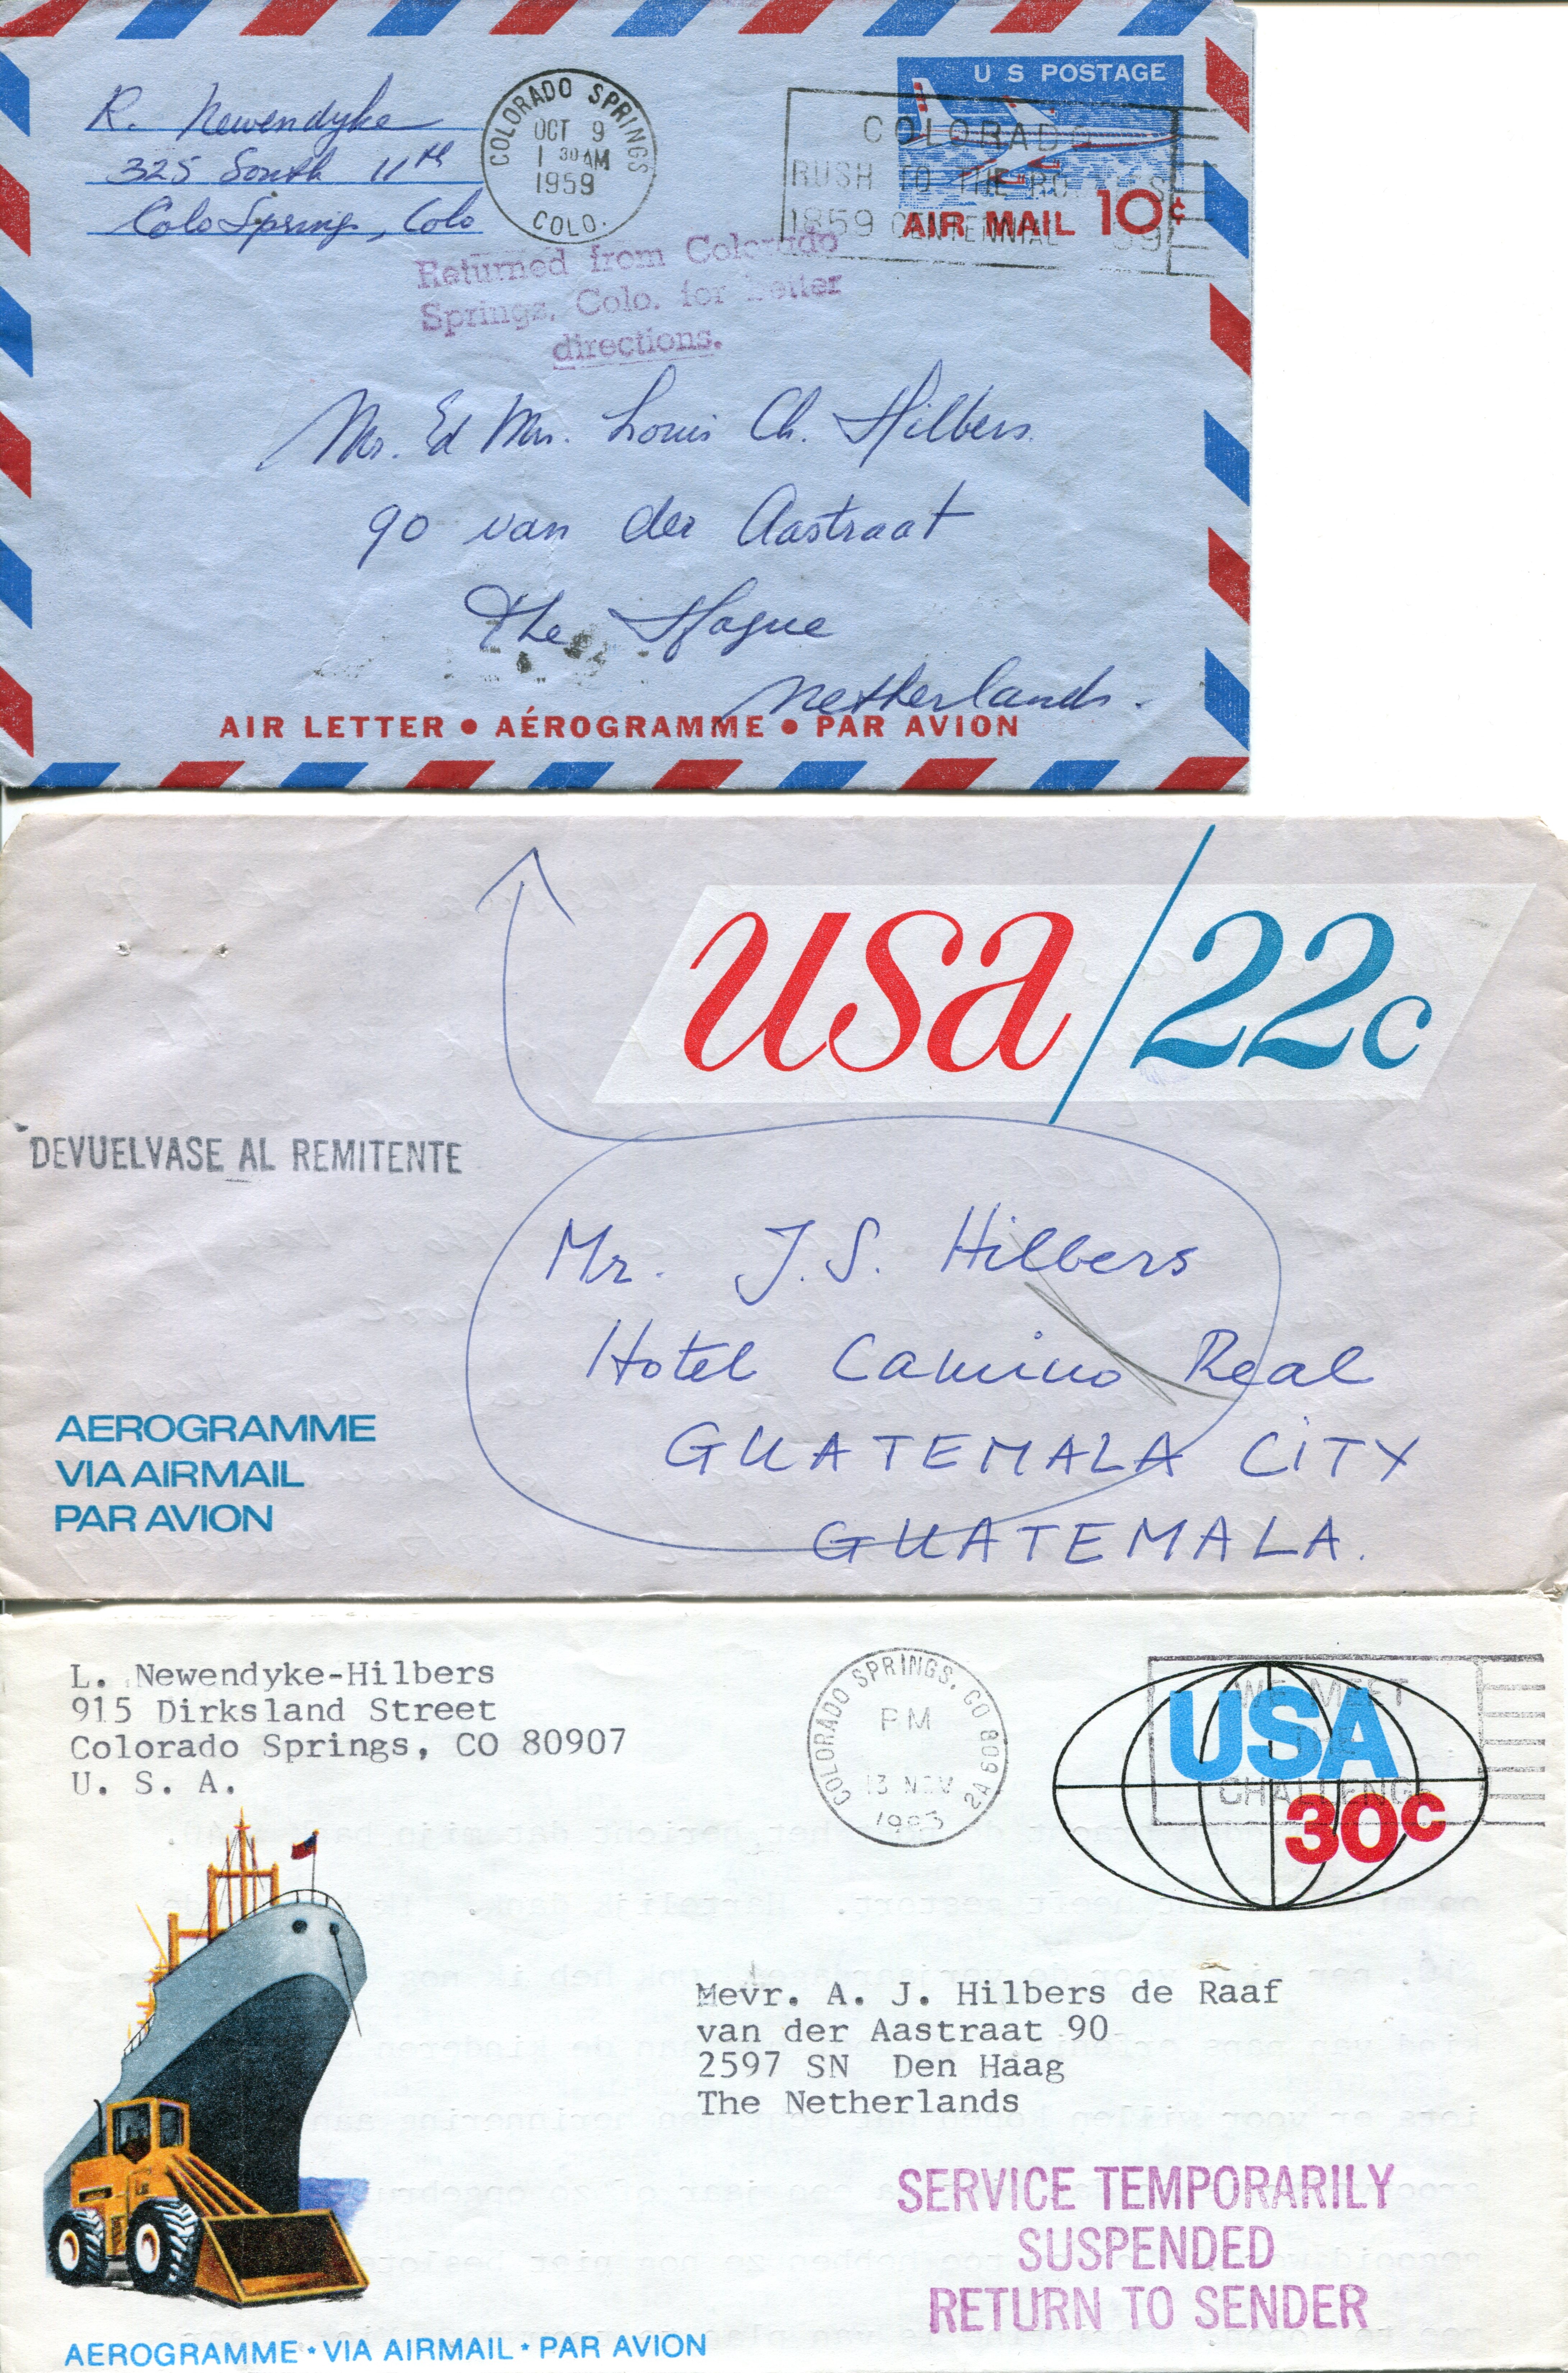 R. Newendyke
325 South 11th
Colo Springs, Colo
COLORADO SPRINGS
OCT 9
1 30 AM
1959
COLO.
U S POSTAGE
COLORADO
RUSH TO THE RO
1859 CENTENNIAL 59
AIR MAIL 10¢
Returned from Colorado
Springs, Colo. for better
directions.
Mr. Ed Mrs. Louis Ch. Hilbers.
90 van der Aastraat
The Hague
Netherlands.
AIR LETTER • AÉROGRAMME • PAR AVION
usa/22c
DEVUELVASE AL REMITENTE
Mr. J.S. Hilbers
Hotel Camino Real
GUATEMALA CITY
GUATEMALA.
AEROGRAMME
VIA AIRMAIL
PAR AVION
L. Newendyke-Hilbers
915 Dirksland Street
Colorado Springs, CO 80907
U. S. A.
COLORADO SPRINGS, CO 809 2A
PM
13 NOV
1983
WE MEET
CHALLENGE
USA
30c
Mevr. A. J. Hilbers de Raaf
van der Aastraat 90
2597 SN Den Haag
The Netherlands
SERVICE TEMPORARILY
SUSPENDED
RETURN TO SENDER
AEROGRAMME • VIA AIRMAIL • PAR AVION